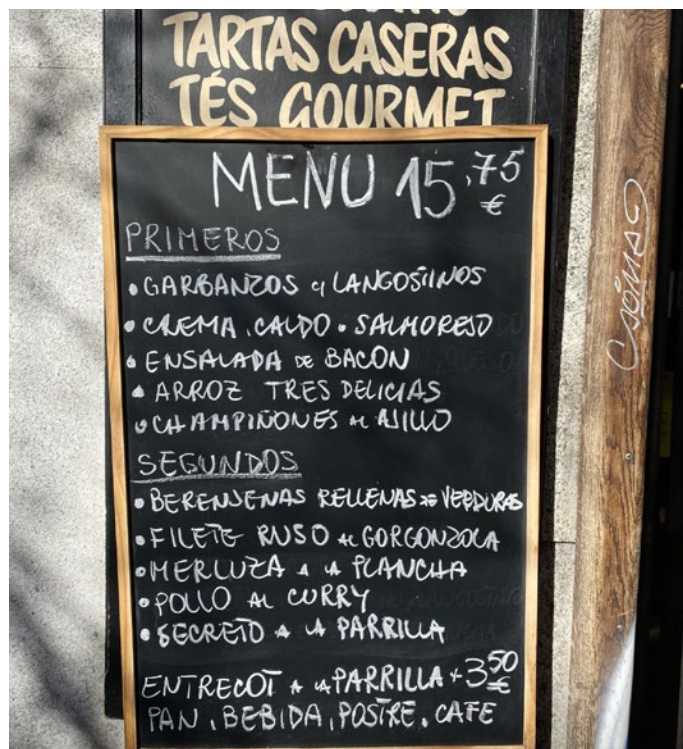 TARTAS CASERAS
TÉS GOURMET
MENU 15,75 €
PRIMEROS
• GARBANZOS c/ LANGOSTINOS
• CREMA. CALDO. SALMOREJO
• ENSALADA DE BACON
• ARROZ TRES DELICIAS
• CHAMPIÑONES AL AJILLO
SEGUNDOS
• BERENJENAS RELLENAS DE VERDURAS
• FILETE RUSO AL GORGONZOLA
• MERLUZA A LA PLANCHA
• POLLO AL CURRY
• SECRETO A LA PARRILLA
ENTRECOT A LA PARRILLA + 3,50 €
PAN, BEBIDA, POSTRE, CAFE